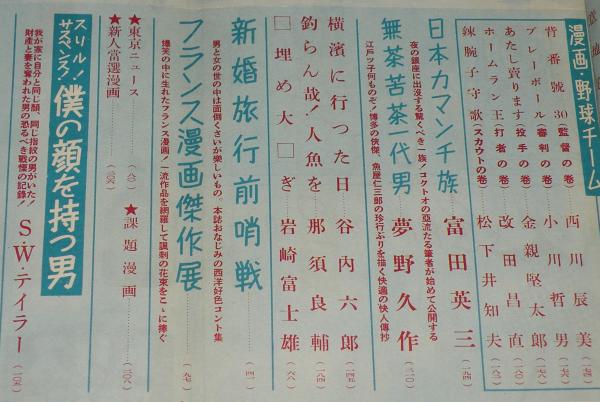 漫画・野球チーム
背番號30(監督の巻) 西川辰美(一七四)
プレーボール(審判の巻) 小川哲男(一七六)
あたし賣ります(投手の巻) 金親堅太郎(一七八)
ホームラン王(打者の巻) 改田昌直(一八〇)
錬腕子守歌(スカウトの巻) 松下井知夫(一八二)
日本カマンチ族 富田英三(一九四)
夜の銀座に出没する驚くべき一族!コクトオの亞流たる筆者が始めて公開する
無茶苦茶一代男 夢野久作(三一〇)
江戸ッ子何ものぞ!博多の侠傑、魚屋仁三郎の珍行ぶりを描く快適の「快人傳抄
横濱に行つた日 谷内六郎(一四五)
釣らん哉!人魚を 那須良輔(一八四)
□埋め大□ぎ 岩崎富士雄(一六八)
新婚旅行前哨戦(四一)
男と女の世の中は面倒くさいが樂しいもの。本誌おなじみの西洋好色コント集
フランス漫画傑作展(九七)
爆笑の中に生れたフランス漫画!一流作品を網羅して諷刺の花束をこゝに捧ぐ
★東京ニュース
★新人當選漫画
★課題漫画(三〇八)
スリル!サスペンス!
僕の顔を持つ男 S・W・テイラー(二〇五)
我が家に自分と同じ顔、同じ指紋の男がいた!
財産と妻を奪われた男の恐るべき戰慄の記録!